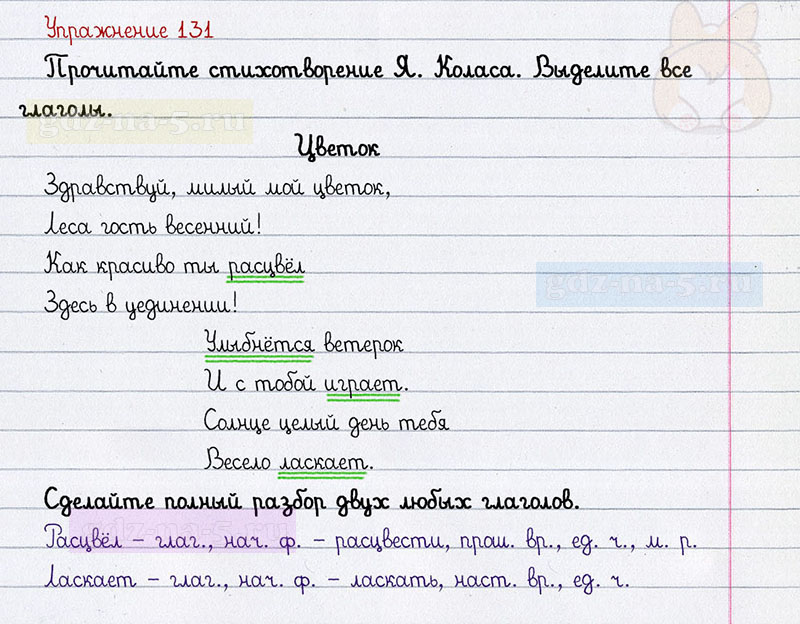 Упражнение 131
Прочитайте стихотворение Я. Коласа. Выделите все
глаголы.
gdz-na-5.ru
Цветок
Здравствуй, милый мой цветок,
Леса гость весенний!
Как красиво ты расцвёл
gdz-na-5.ru
Здесь в уединении!
Улыбнётся ветерок
И с тобой играет.
Солнце целый день тебя
Весело ласкает.
Сделайте полный разбор двух любых глаголов.
gdz-na-5.ru
Расцвёл – глаг., нач. ф. – расцвести, прош. вр., ед. ч., м. р.
Ласкает – глаг., нач. ф. – ласкать, наст. вр., ед. ч.